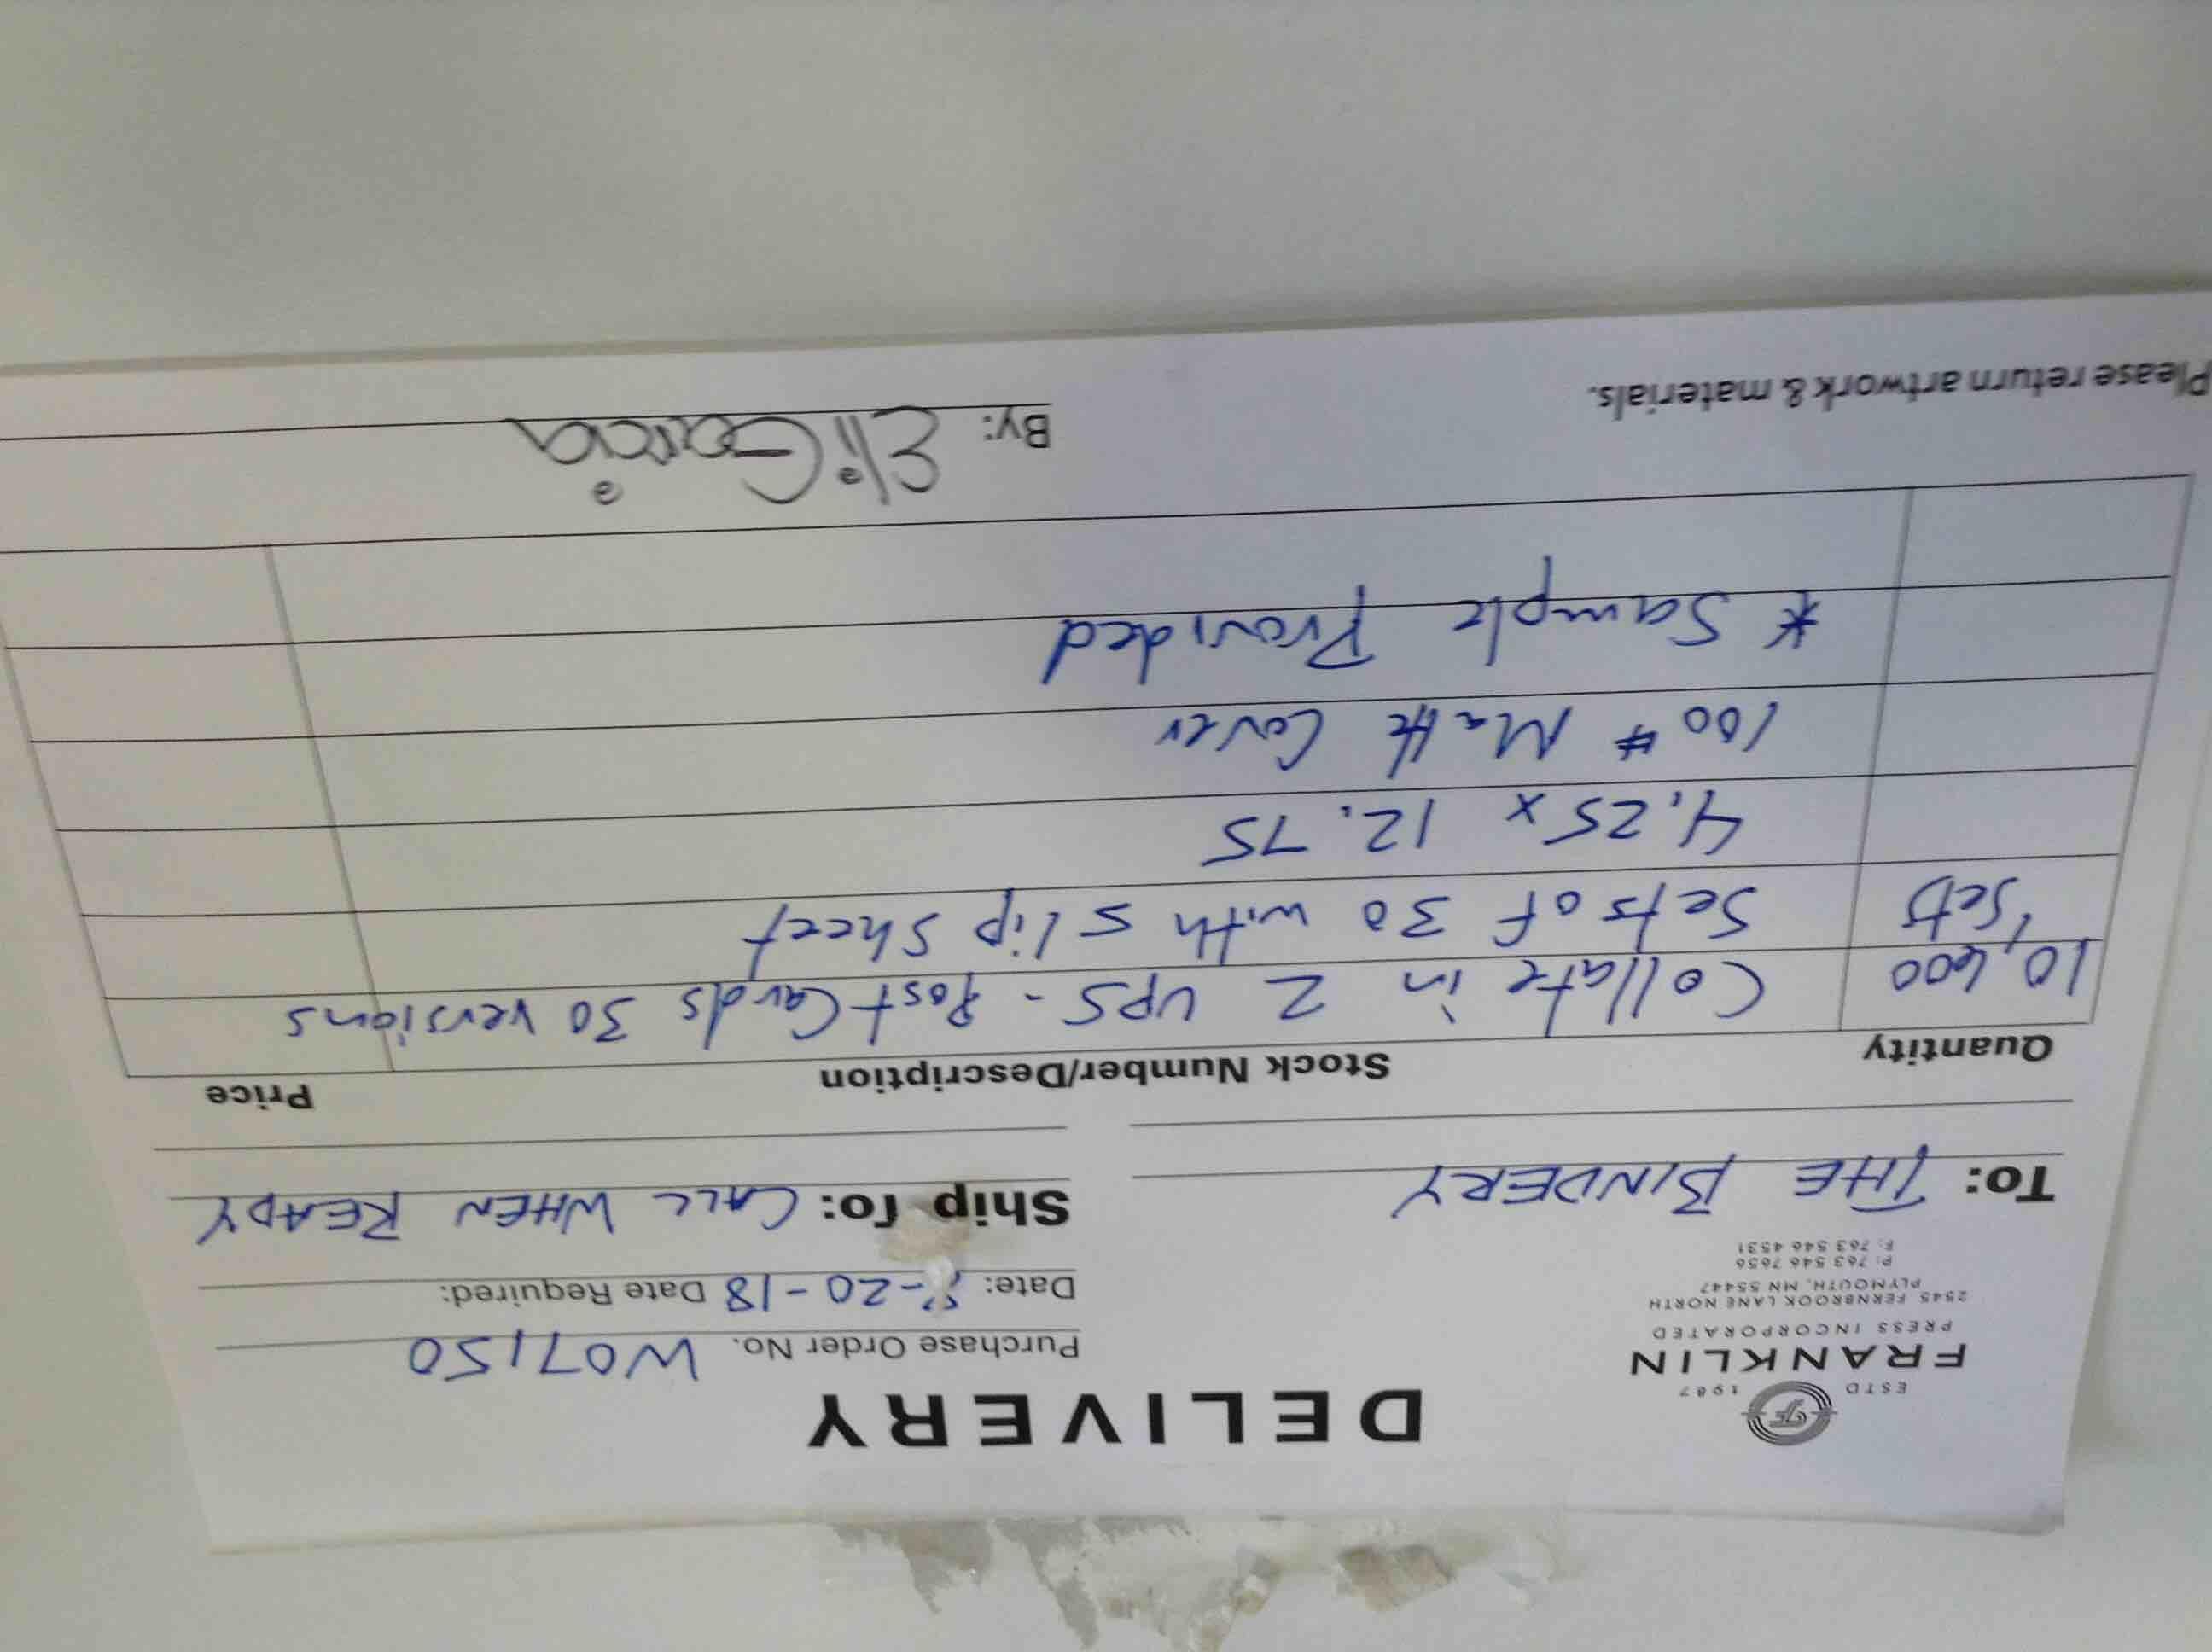 DELIVERY
ESTD 1987
FRANKLIN
PRESS INCORPORATED
2545 FERNBROOK LANE NORTH
PLYMOUTH, MN 55447
P: 763 546 7656
F: 763 546 4531
Purchase Order No. W07150
Date: -20-18 Date Required:
To: THE BINDERY
Ship To: CALL WHEN READY
Quantity Stock Number/Description Price
10,600 Collate in 2 UPS - Post Cards 30 versions
Sets Sets of 30 with slip sheet
4.25 x 12.75
100 # Matte Cover
* Sample Provided
Please return artwork & materials.
By: Eli Garcia